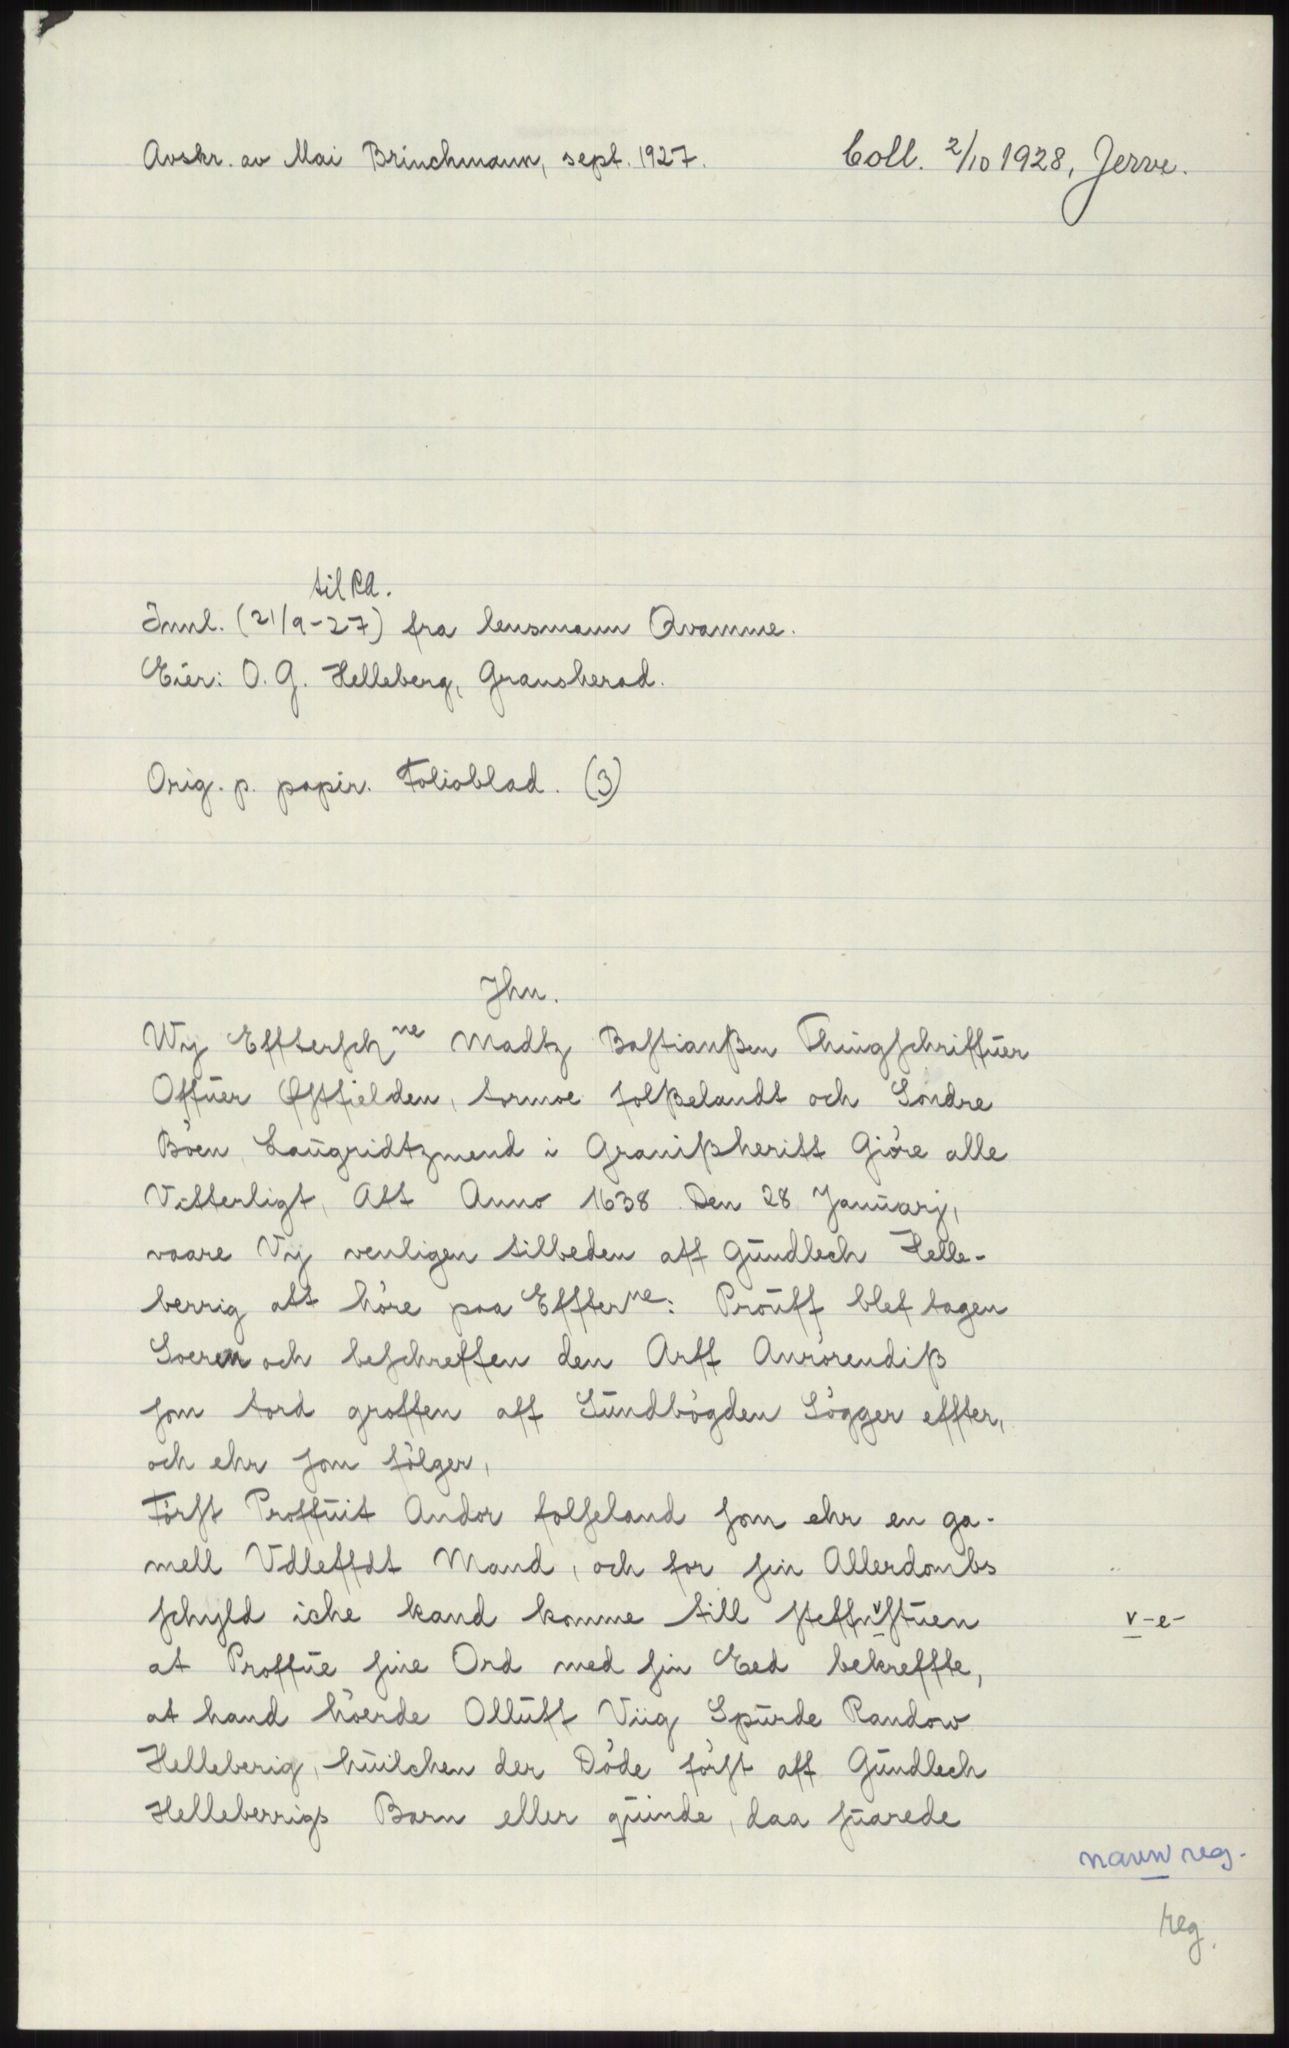 Avskr. av Mai Brinchmann, sept. 1927. Coll. 2/10 1928, Jerve.
til RA.
Innl. (21/9-27) fra lensmann Qvamme.
Eier: O. G. Helleberg, Gransherad.
Orig. p. papir. Folioblad. (3)
Jhu.
Wy Efftersch ne Madtz Bastianßen Thingschriffuer
Offuer Østfielden, tormoe folßelandt och Søndre
Böen Laugridtzmend i Granißheritt Giöre alle
Vitterligt, Att Anno 1638 Den 28 Januarj,
vaare Vy venligen tilbeden aff Gundlech Helle-
berrig att höre paa Effter ne: Prouff blef tagen
Soeren och beschreffen den Arff Anrörendiß
som tord groffen aff Sundbögden Sögger effter,
och ehr som fölger,
Först Proffuit Andor folseland som ehr en ga-
mell Vdleffdt Mand, och for sin Allerdombs
schyld iche kand komme till steffnvstuen
v-e-
at Proffue sine Ord med sin Eed bekreffte,
at hand höerde Olluff Viig Spurde Randow
Helleberig, huilchen der Döde först aff Gundlech
Helleberrigs Barn eller quinde, daa suarede
navn reg.
reg.